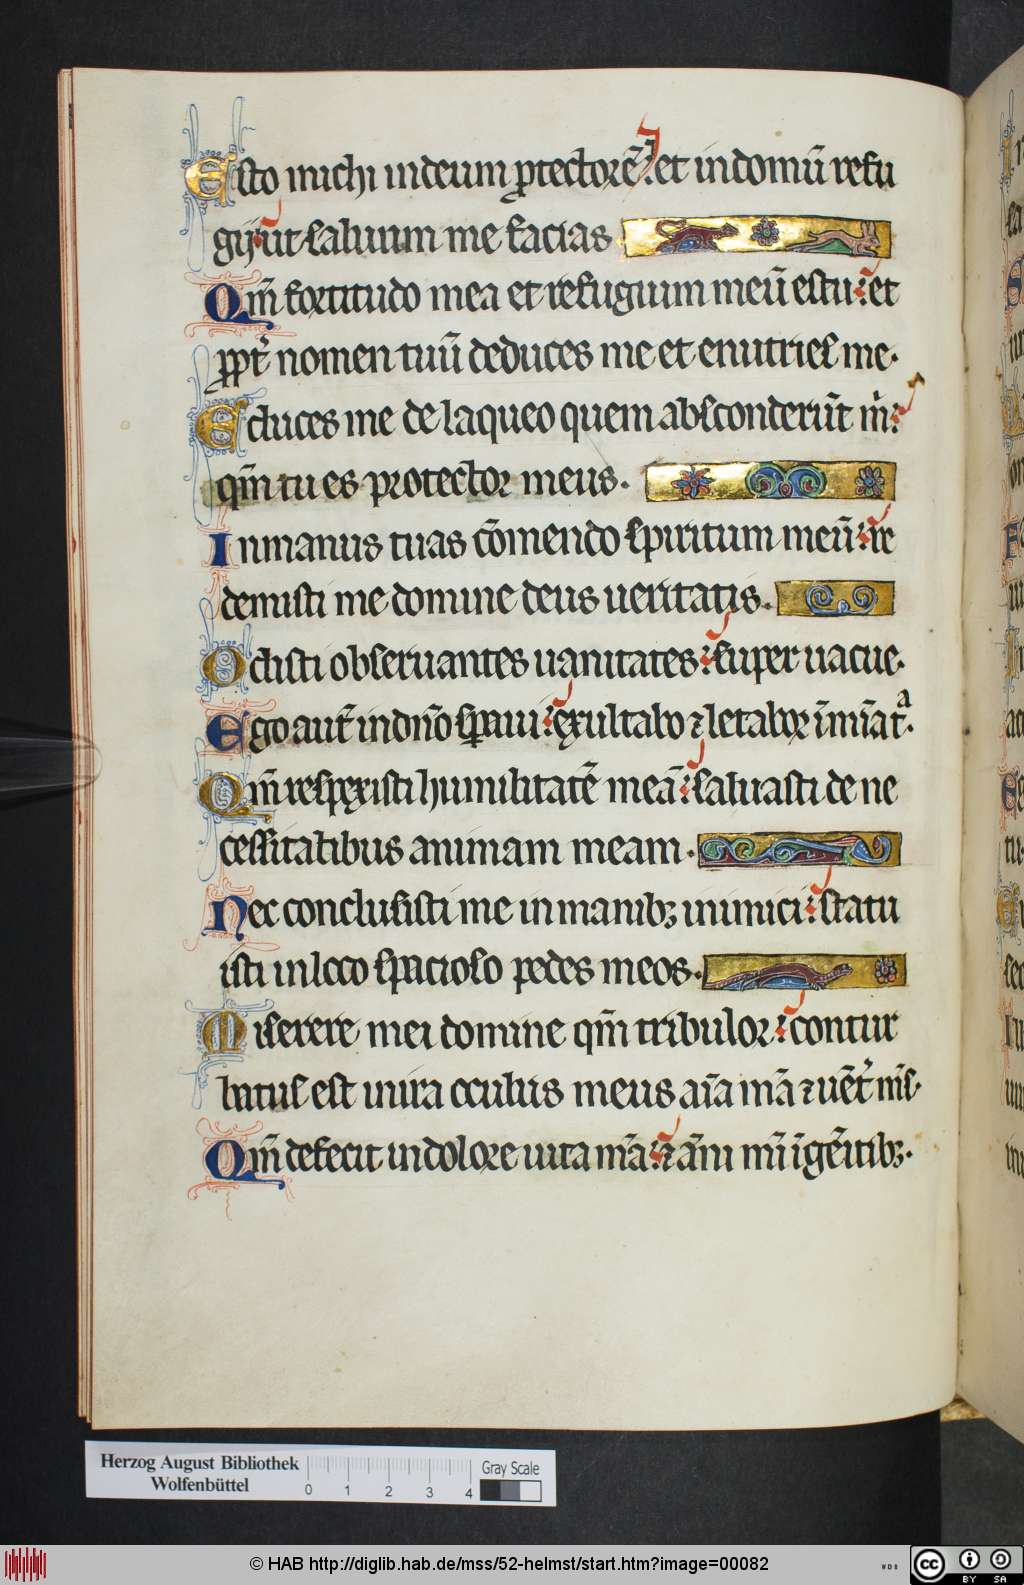 Esto michi in deum ꝓtectorē: et in domū refu
gij ut saluum me facias
Qm̄ fortitudo mea et refugium meū es tu: et
ꝓpt̄ nomen tuū deduces me et enutries me.
Educes me de laqueo quem absconderūt m̄:
qm̄ tu es protector meus.
In manus tuas cōmendo spiritum meū: re
demisti me domine deus ueritatis.
Odisti obseruantes uanitates: super uacue.
Ego aut̄ in dn̄o sꝑaui: exultabo ⁊ letabor ī mīa tᵃ.
Qm̄ respexisti humilitatē meā: saluasti de ne
cessitatibus animam meam.
Nec conclusisti me in manibꝫ inimici: statu
isti in loco spacioso pedes meos.
Miserere mei domine qm̄ tribulor: contur
batus est in ira oculus meus aīa mā ⁊ uēt̄ ms̄.
Qm̄ defecit in dolore uita mā: ⁊ ām̄ mī ī gēitibꝫ.
Herzog August Bibliothek
Wolfenbüttel
0 1 2 3 4
Gray Scale
© HAB http://diglib.hab.de/mss/52-helmst/start.htm?image=00082
WDB
CC BY SA